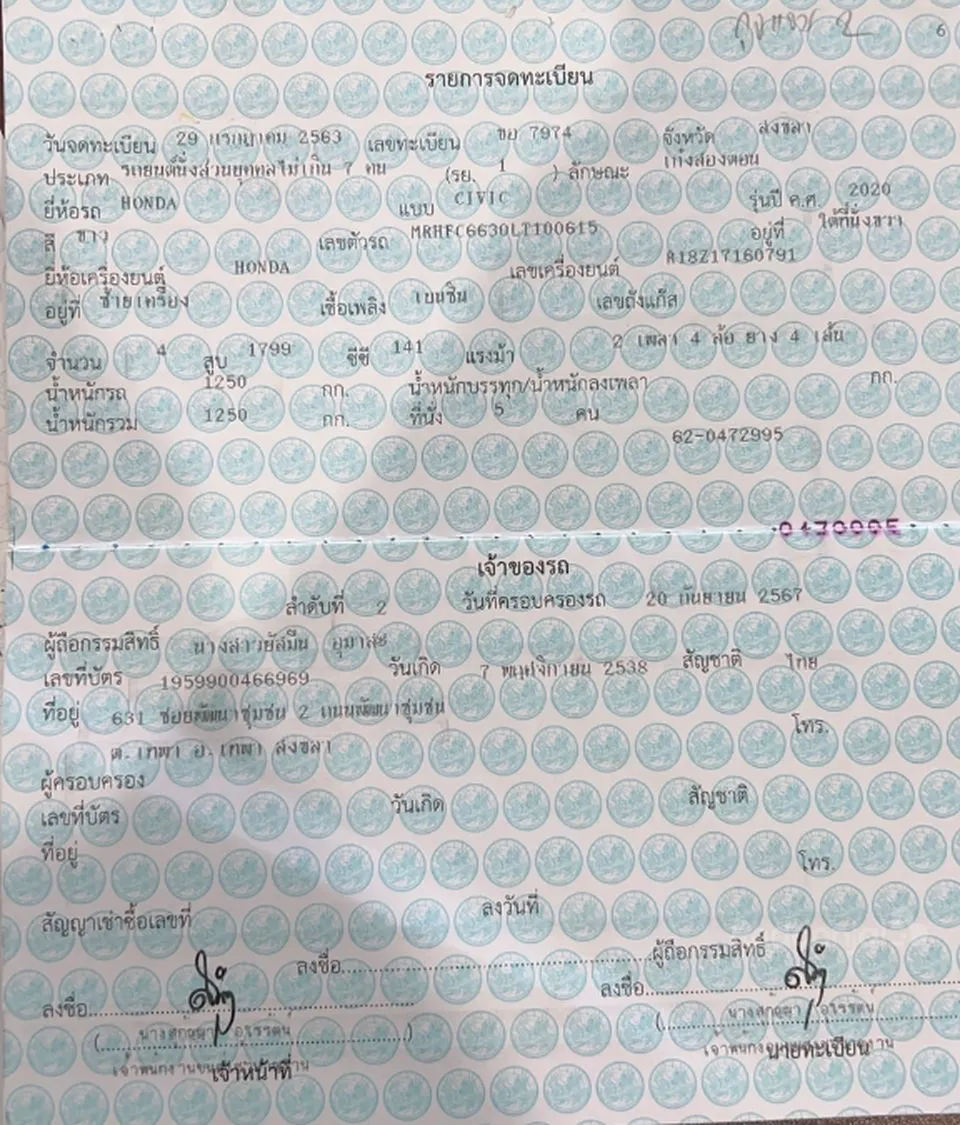 6
รายการจดทะเบียน
วันจดทะเบียน 29 กรกฎาคม 2563 เลขทะเบียน ขอ 7974 จังหวัด สงขลา
ประเภท รถยนต์นั่งส่วนบุคคลไม่เกิน 7 คน (รย. 1 ) ลักษณะ เก๋งสองตอน
ยี่ห้อรถ HONDA แบบ CIVIC รุ่นปี ค.ศ. 2020
สี ขาว เลขตัวรถ MRHFC6630LT100615 อยู่ที่ ใต้ที่นั่งขวา
ยี่ห้อเครื่องยนต์ HONDA เลขเครื่องยนต์ R18Z17160791
อยู่ที่ ซ้ายเครื่อง เชื้อเพลิง เบนซิน เลขถังแก๊ส
จำนวน 4 สูบ 1799 ซีซี 141 แรงม้า 2 เพลา 4 ล้อ ยาง 4 เส้น
น้ำหนักรถ 1250 กก. น้ำหนักบรรทุก/น้ำหนักลงเพลา กก.
น้ำหนักรวม 1250 กก. ที่นั่ง 5 คน
62-0472995
เจ้าของรถ
ลำดับที่ 2 วันที่ครอบครองรถ 20 กันยายน 2567
ผู้ถือกรรมสิทธิ์ นางสาวยัสมีน
เลขที่บัตร 1959900466969 วันเกิด 7 พฤศจิกายน 2538 สัญชาติ ไทย
ที่อยู่ 631 ซอยพัฒนาชุมชน 2 ถนนพัฒนาชุมชน โทร.
ต.เทพา อ.เทพา สงขลา
ผู้ครอบครอง
เลขที่บัตร วันเกิด สัญชาติ
ที่อยู่ โทร.
สัญญาเช่าซื้อเลขที่ ลงวันที่
ลงชื่อ ผู้ถือกรรมสิทธิ์
ลงชื่อ ลงชื่อ
( ) (
เจ้าหน้าที่ นายทะเบียน